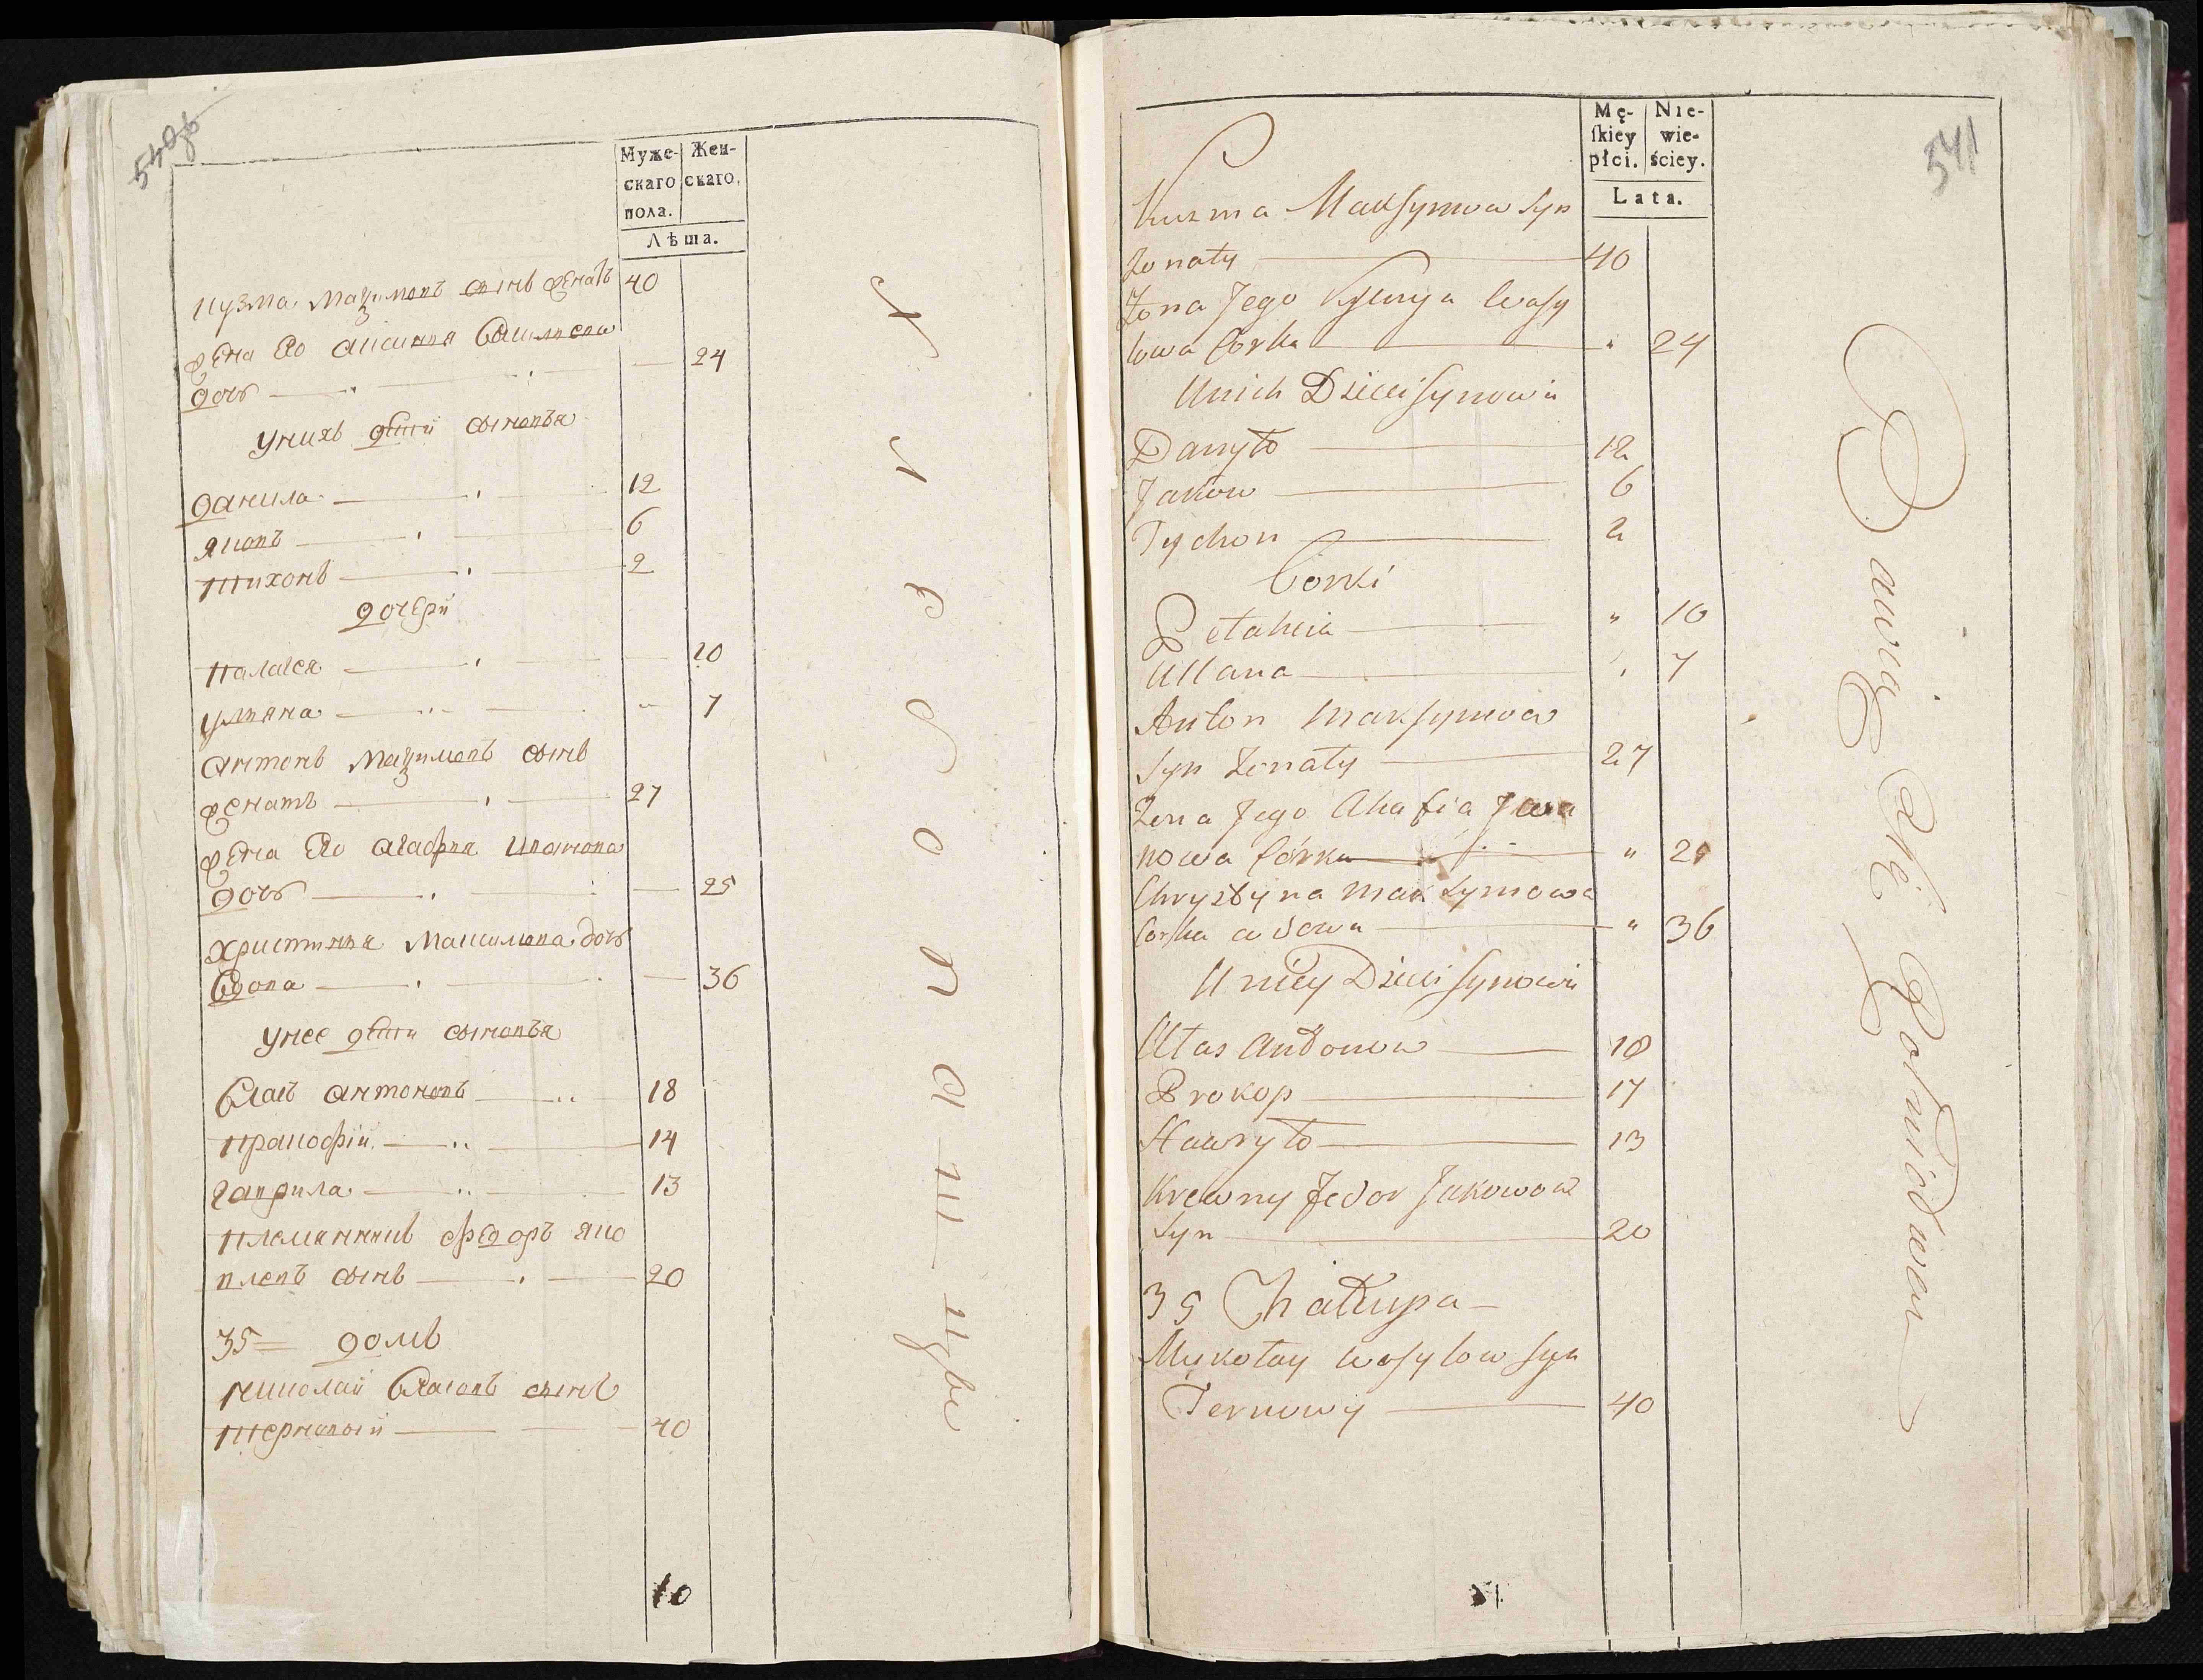 540об
Муже-
скаго
пола.
Жен-
скаго.
Лѣта.
Кузма Мазимовъ сынъ женатъ 40
жена его Аксиния Василиева
дочь 24
Унихъ дѣти сыновъя
Данила 12
Яковъ 6
Тихонъ 2
дочери
Палагея 10
Уляна 7
Антонъ Мазимовъ сынъ
женатъ 27
жена его Агафия Иванова
дочь 25
Христиния Максимова дочь
вдова 36
Унее дѣти сыновъя
Власъ Антоновъ 18
Пракофiй 14
Гаврила 13
Племянникъ Федоръ Яко
влевъ сынъ 20
35 = домъ
Николай Власовъ сынъ
Терновый 40
10
541
Mę-
skiey
płci.
Nie-
wie-
ściey.
Lata.
Kuzma Maksymow Syn
Żonaty 40
Żona Jego Ksenya Wasy
lowa Córka " 24
Unich Dzieci Synowie
Danyło 12
Jakow 6
Tychon 2
Corki
Pelahia " 10
Ullana " 7
Anton Maksymow
Syn Żonaty 27
Żona Jego Ahafia Iwa
nowa Córka " 25
Chrystyna Maksymowa
Corka wdowa " 36
U niey Dzieci Synowie
Ułas Andonow 18
Prokop 14
Hawryło 13
Krewny Fedor Jakowow
Syn 20
35 Chałupa
Mykołay Wasylow Syn
Ternowy 40